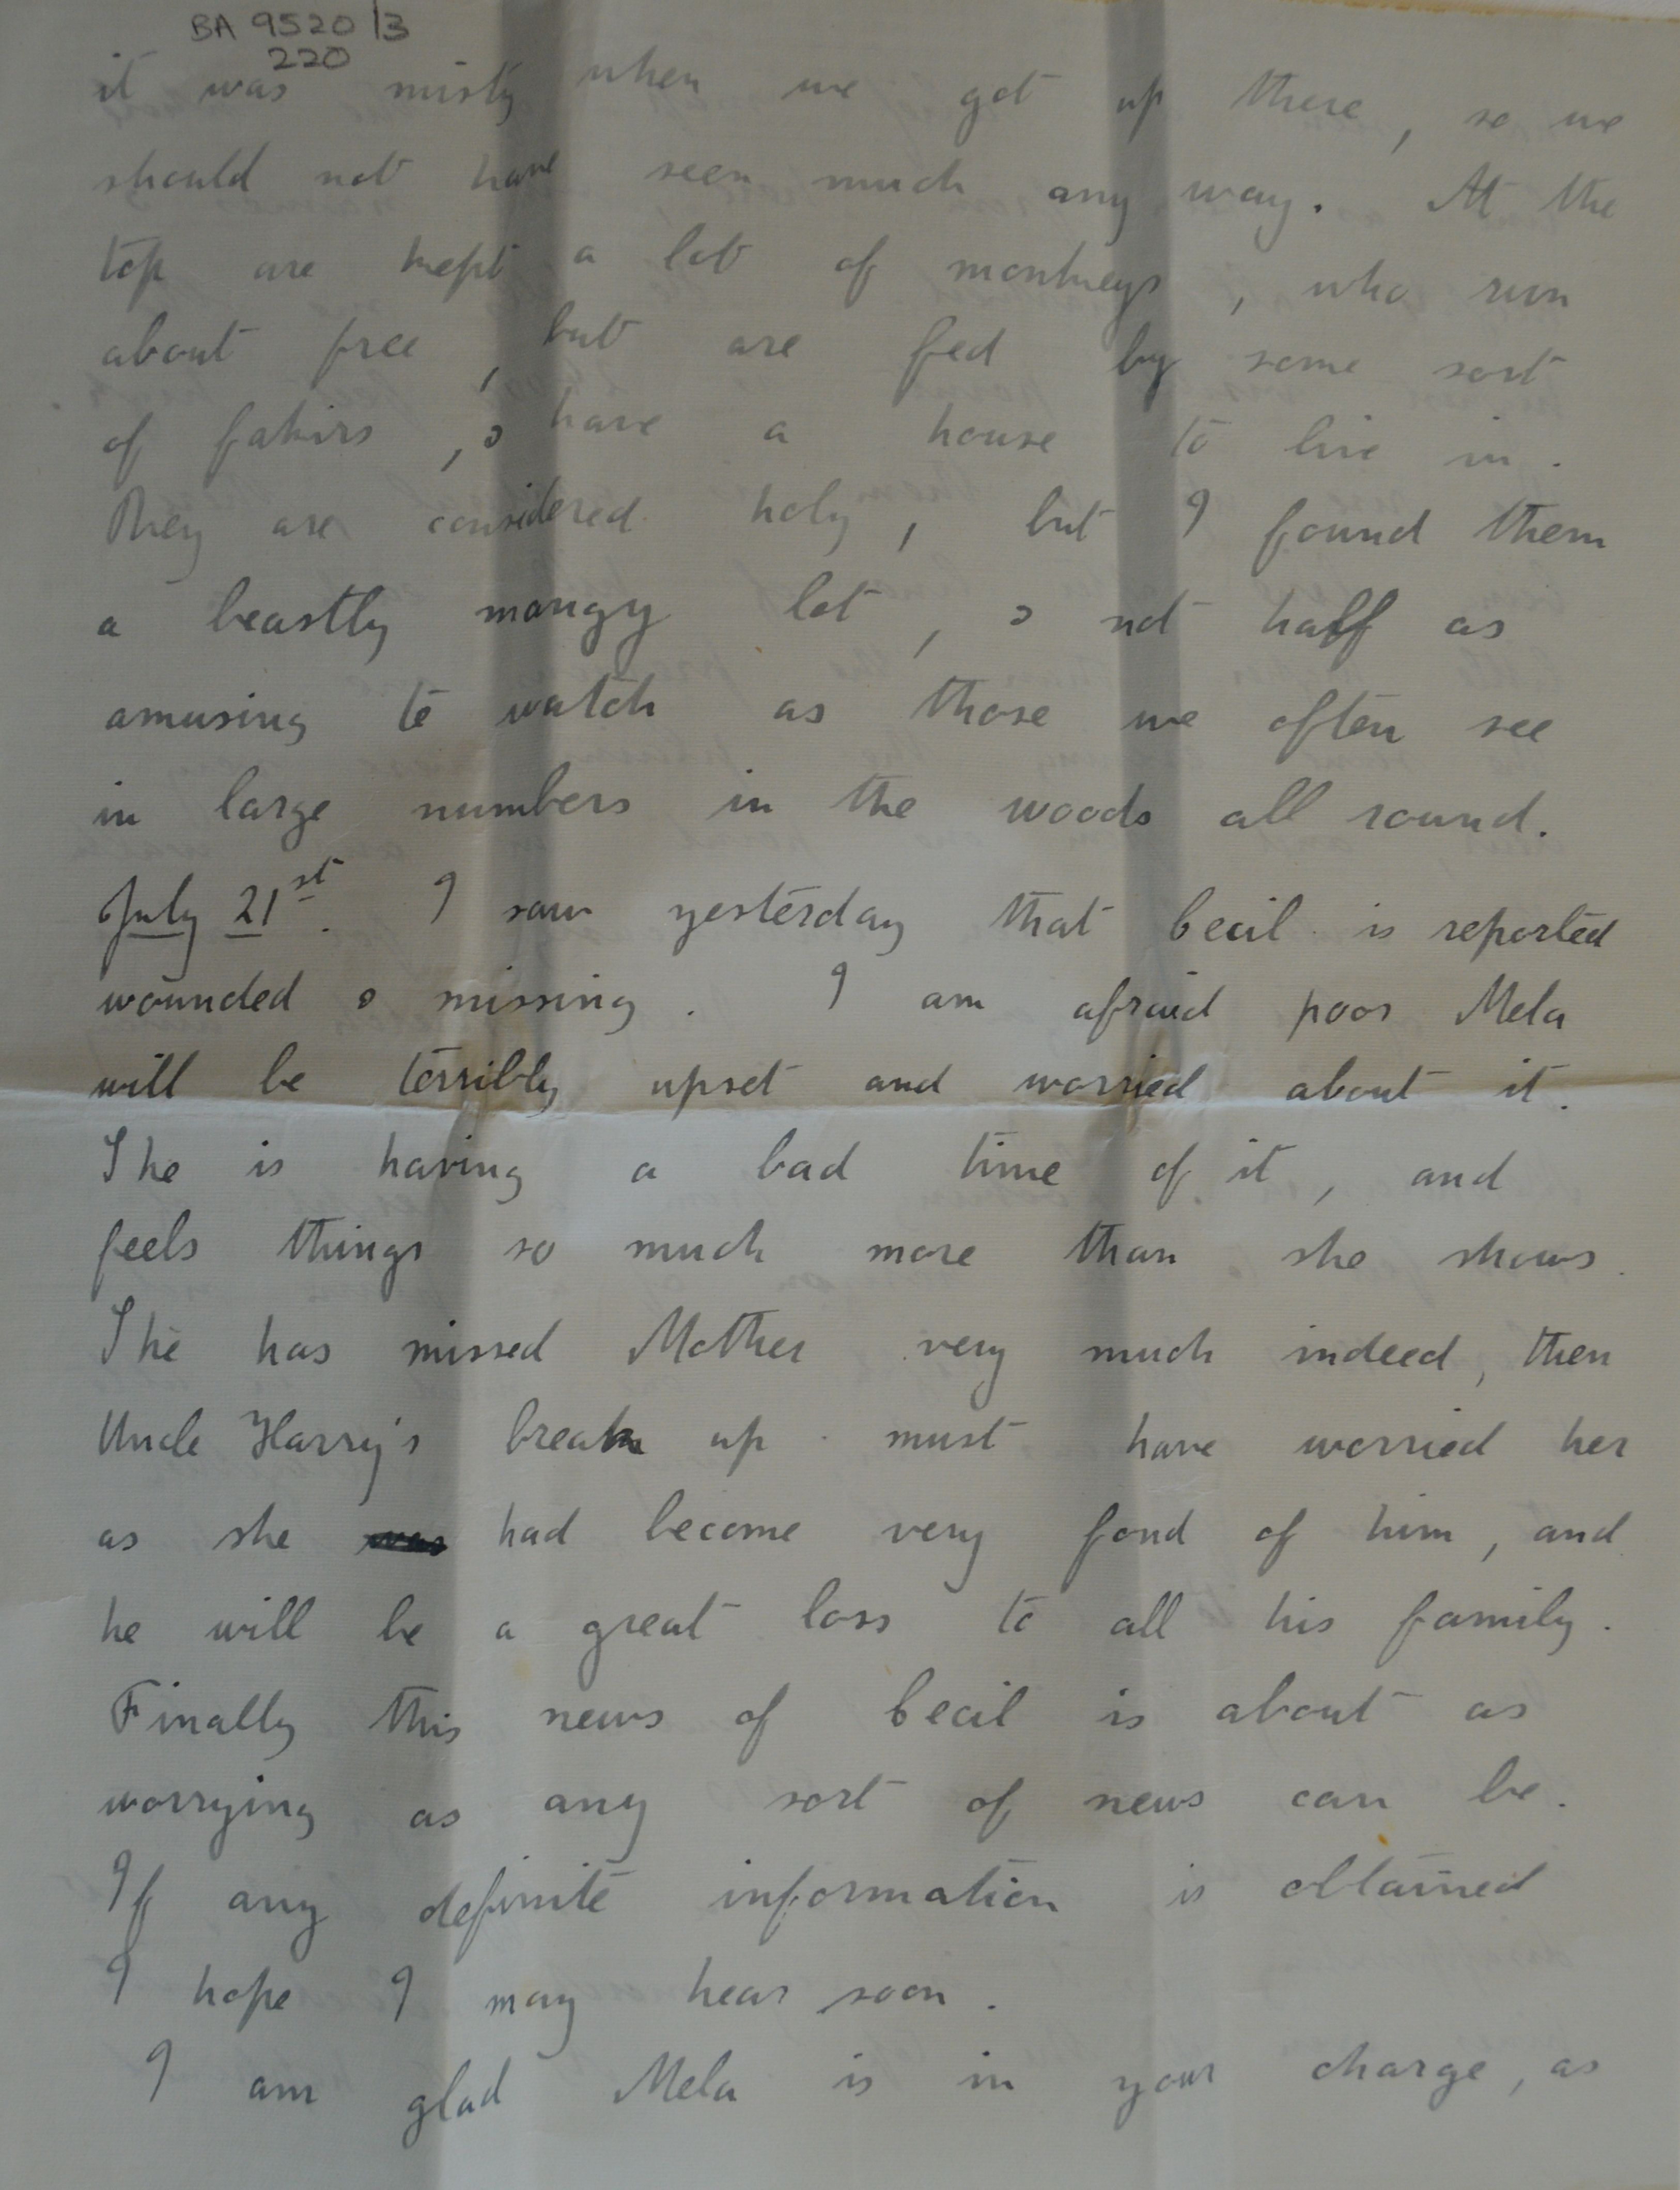 BA 9520/3
220
it was misty when we got up there, so we
should not have seen much any way. At the
top are kept a lot of monkeys, who run
about free, but are fed by some sort
of fakirs, & have a house to live in.
They are considered holy, but I found them
a beastly mangy lot, & not half as
amusing to watch as those we often see
in large numbers in the woods all round.
July 21st. I saw yesterday that Cecil is reported
wounded & missing. I am afraid poor Mela
will be terribly upset and worried about it.
She is having a bad time of it, and
feels things so much more than she shows.
She has missed Mother very much indeed, then
Uncle Harry's break up must have worried her
as she was had become very fond of him, and
he will be a great loss to all his family.
Finally this news of Cecil is about as
worrying as any sort of news can be.
If any definite information is obtained
I hope I may hear soon.
I am glad Mela is in your charge, as